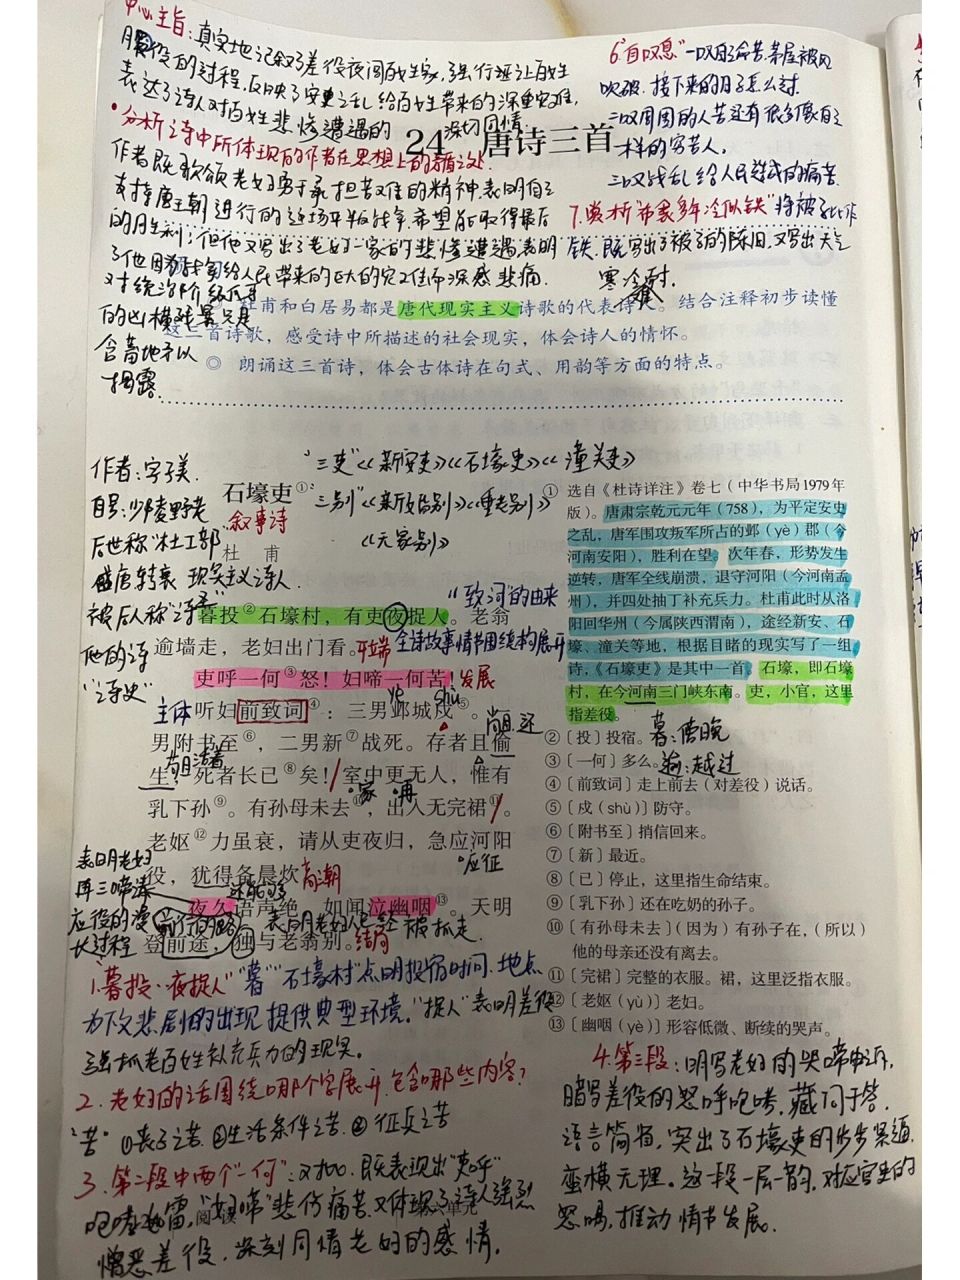 中心主旨：真实地记叙了差役夜间闯民家，强行逼让百姓
服役的过程，反映了安史之乱给百姓带来的深重灾难，
表达了诗人对百姓悲惨遭遇的
深切同情
·分析诗中所体现的作者在思想上的矛盾之处
作者既歌颂老妇勇于承担苦难的精神，表明自己
支持唐王朝进行的这场平叛战争，希望能取得最后
的胜利；但他又写出了老妇一家的悲惨遭遇，表明
了他因为战争给人民带来的巨大的灾难而深感悲痛
对统治阶级
的凶横残暴只是
含蓄地予以
揭露
6."自叹息"一叹自命苦，茅屋被风
吹破，接下来的日子怎么过
二叹周围的人苦还有很多像自己
一样的穷苦人，
三叹战乱给人民造成的痛苦
7.赏析"布衾多年冷似铁"将被子比作
铁，既写出了被子的陈旧，又写出天气
寒冷
24 唐诗三首
杜甫和白居易都是唐代现实主义诗歌的代表诗人。结合注释初步读懂
这三首诗歌，感受诗中所描述的社会现实，体会诗人的情怀。
◎ 朗诵这三首诗，体会古体诗在句式、用韵等方面的特点。
作者：字子美
自号：少陵野老
后世称"杜工部"
盛唐转衰 现实主义诗人
被后人称"诗圣"
他的诗
"诗史"
"三吏"《新安吏》《石壕吏》《潼关吏》
三别"《新婚别》《垂老别》
《无家别》
石壕吏①
叙事诗
杜 甫
"致词"的由来
暮投②石壕村，有吏夜捉人。老翁
逾墙走，老妇出门看。
开端
全诗故事情节围绕构展开
吏呼一何③怒！妇啼一何苦！
发展
主体
听妇前致词④：三男邺城戍⑤。
yè
shù
男附书至⑥，二男新⑦战死。存者且偷
尚且，还
苟且活着
生，死者长已⑧矣！室中更无人，惟有
家
再
乳下孙⑨。有孙母未去⑩，出入无完裙⑪。
老妪⑫力虽衰，请从吏夜归，急应河阳
应征
役，犹得备晨炊
高潮
还能够
夜久语声绝，如闻泣幽咽⑬。天明
登前途，独与老翁别。
结局
前行的路
表明老妇人已经被抓走
表明老妇
再三啼凄
应役的漫
长过程
① 选自《杜诗详注》卷七（中华书局1979年
版）。唐肃宗乾元元年（758），为平定安史
之乱，唐军围攻叛军所占的邺（yè）郡（今
河南安阳），胜利在望。次年春，形势发生
逆转，唐军全线崩溃，退守河阳（今河南孟
州），并四处抽丁补充兵力。杜甫此时从洛
阳回华州（今属陕西渭南），途经新安、石
壕、潼关等地，根据目睹的现实写了一组
诗，《石壕吏》是其中一首。石壕，即石壕
村，在今河南三门峡东南。吏，小官，这里
指差役。
②〔投〕投宿。
暮：傍晚
③〔一何〕多么。
逾：越过
④〔前致词〕走上前去（对差役）说话。
⑤〔戍（shù）〕防守。
⑥〔附书至〕捎信回来。
⑦〔新〕最近。
⑧〔已〕停止，这里指生命结束。
⑨〔乳下孙〕还在吃奶的孙子。
⑩〔有孙母未去〕（因为）有孙子在，（所以）
他的母亲还没有离去。
⑪〔完裙〕完整的衣服。裙，这里泛指衣服。
⑫〔老妪（yù）〕老妇。
⑬〔幽咽（yè）〕形容低微、断续的哭声。
1.暮投、夜捉人"暮""石壕村"点明投宿时间、地点
为下文悲剧的出现提供典型环境。"捉人"表明差役
强抓老百姓补充兵力的现实。
2.老妇的话围绕哪个字展开，包含哪些内容？
"苦" ①丧子之苦 ②生活条件之苦 ③征兵之苦
3.第二段中两个"一何"：对如，既表现出"吏呼"
咆哮如雷，"妇啼"悲伤痛苦，又体现了诗人强烈
憎恶差役，深刻同情老妇的感情。
4.第三段：明写老妇的哭啼申诉，
暗写差役的怒呼咆哮，藏问于答，
语言简省，突出了石壕吏的步步紧逼，
蛮横无理。这一段一层一韵，对应官吏的
怒喝，推动情节发展.
阅 读
第六单元